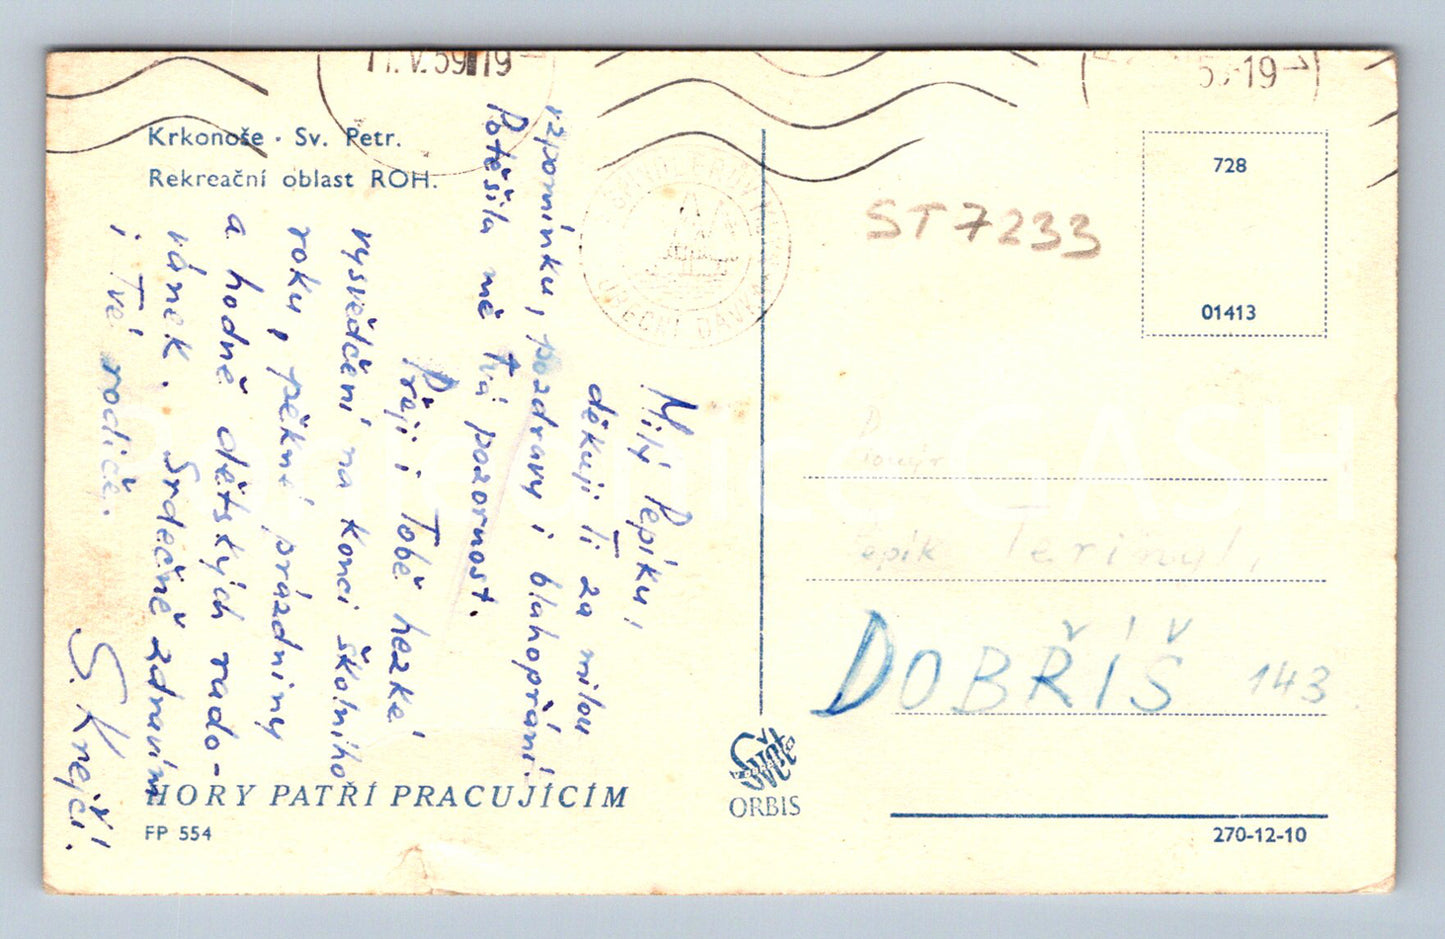 11.V.59-19
59-19
Krkonoše · Sv. Petr.
Rekreační oblast ROH.
Milý Pepíku,
děkuji Ti za milou
vzpomínku, pozdravy i blahopřání.
Potěšila mě tvá pozornost.
Přeji i Tobě hezké
vysvědčení na konci školního
roku, pěkné prázdniny
a hodně dětských rado-
vánek. Srdečně zdravím
i Tvé rodiče.
S. Krejčí.
HORY PATŘÍ PRACUJÍCÍM
FP 554
ORBIS
ST7233
728
01413
Pionýr
Pepík
DOBŘÍŠ 143
270-12-10